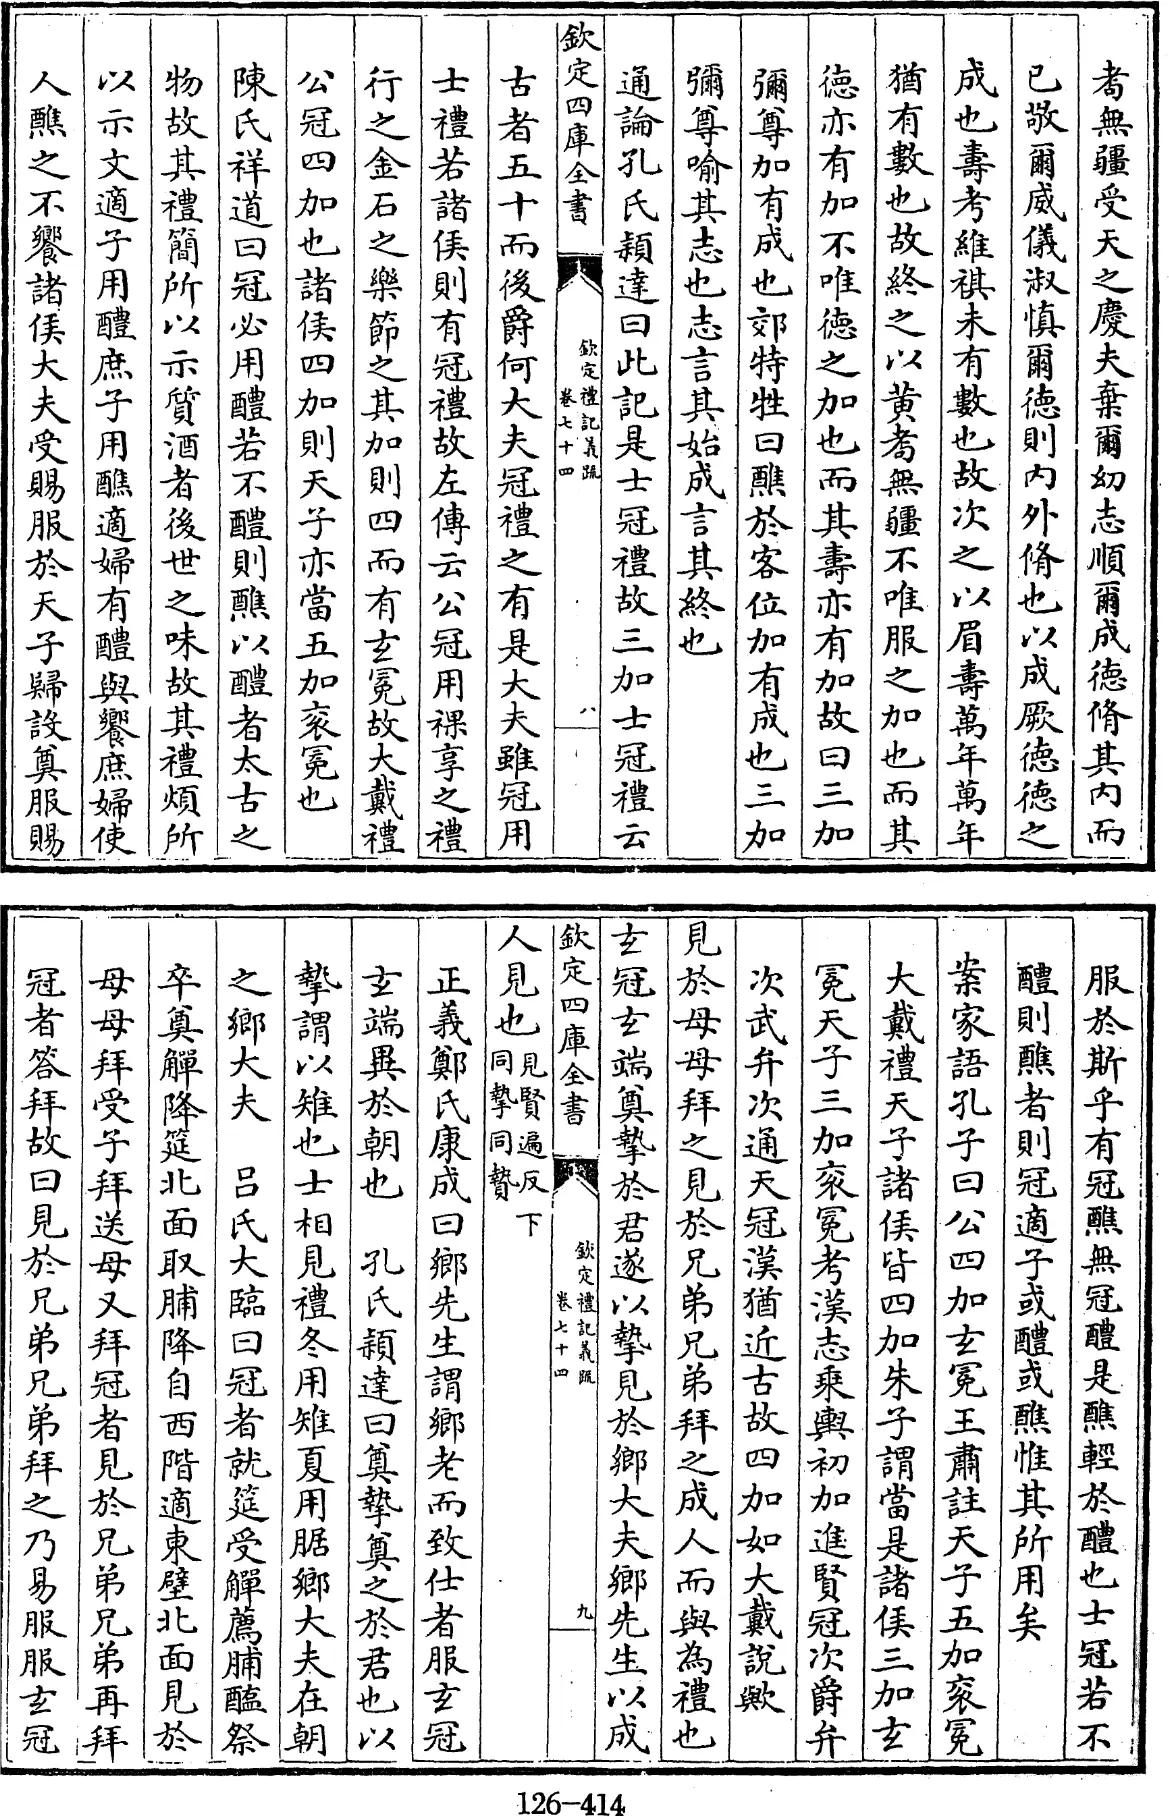 耇無疆受天之慶夫棄爾幼志順爾成德脩其內而
已敬爾威儀淑慎爾德則内外脩也以成厥德德之
成也壽考維祺未有數也故次之以眉壽萬年萬年
猶有數也故終之以黄耇無疆不唯服之加也而其
德亦有加不唯德之加也而其壽亦有加故曰三加
彌尊加有成也郊特牲曰醮於客位加有成也三加
彌尊喻其志也志言其始成言其終也
通論孔氏頴達曰此記是士冠禮故三加士冠禮云
欽定四庫全書
欽定禮記義疏
卷七十四
八
古者五十而後爵何大夫冠禮之有是大夫雖冠用
士禮若諸侯則有冠禮故左傳云公冠用祼享之禮
行之金石之樂節之其加則四而有玄冕故大戴禮
公冠四加也諸侯四加則天子亦當五加衮冕也
陳氏祥道曰冠必用醴若不醴則醮以醴者太古之
物故其禮簡所以示質酒者後世之味故其禮煩所
以示文適子用醴庶子用醮適婦有醴與饗庶婦使
人醮之不饗諸侯大夫受賜服於天子歸設奠服賜
服於斯乎有冠醮無冠醴是醮輕於醴也士冠若不
醴則醮者則冠適子或醴或醮惟其所用矣
案家語孔子曰公四加玄冕王肅註天子五加衮冕
大戴禮天子諸侯皆四加朱子謂當是諸侯三加玄
冕天子三加衮冕考漢志乘輿初加進賢冠次爵弁
次武弁次通天冠漢猶近古故四加如大戴說歟
見於母母拜之見於兄弟兄弟拜之成人而與為禮也
玄冠玄端奠摯於君遂以摯見於鄉大夫鄉先生以成
欽定四庫全書
欽定禮記義疏
卷七十四
九
人見也見賢遍反下同摯同贄
正義鄭氏康成曰鄉先生謂鄉老而致仕者服玄冠
玄端異於朝也 孔氏頴達曰奠摯奠之於君也以
摯謂以雉也士相見禮冬用雉夏用腒鄉大夫在朝
之鄉大夫 呂氏大臨曰冠者就筵受觶薦脯醢祭
卒奠觶降筵北面取脯降自西階適東壁北面見於
母母拜受子拜送母又拜冠者見於兄弟兄弟再拜
冠者答拜故曰見於兄弟兄弟拜之乃易服服玄冠
126-414